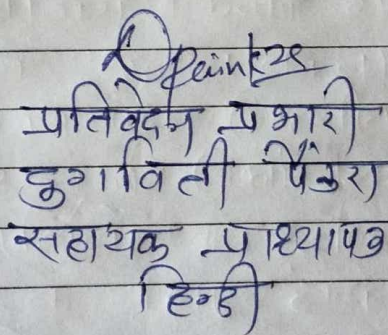 प्रतिवेदन प्रभारी
दुर्गावती पैंकरा
सहायक प्राध्यापक
हिन्दी